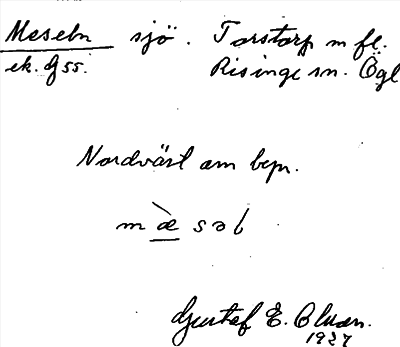 Meseln sjö. Torstorp m fl.
ek. g ss. Risinge sn. Ögl
Nordväst om bepr.
m æ s ə b
Gustaf E. Olsson.
1927